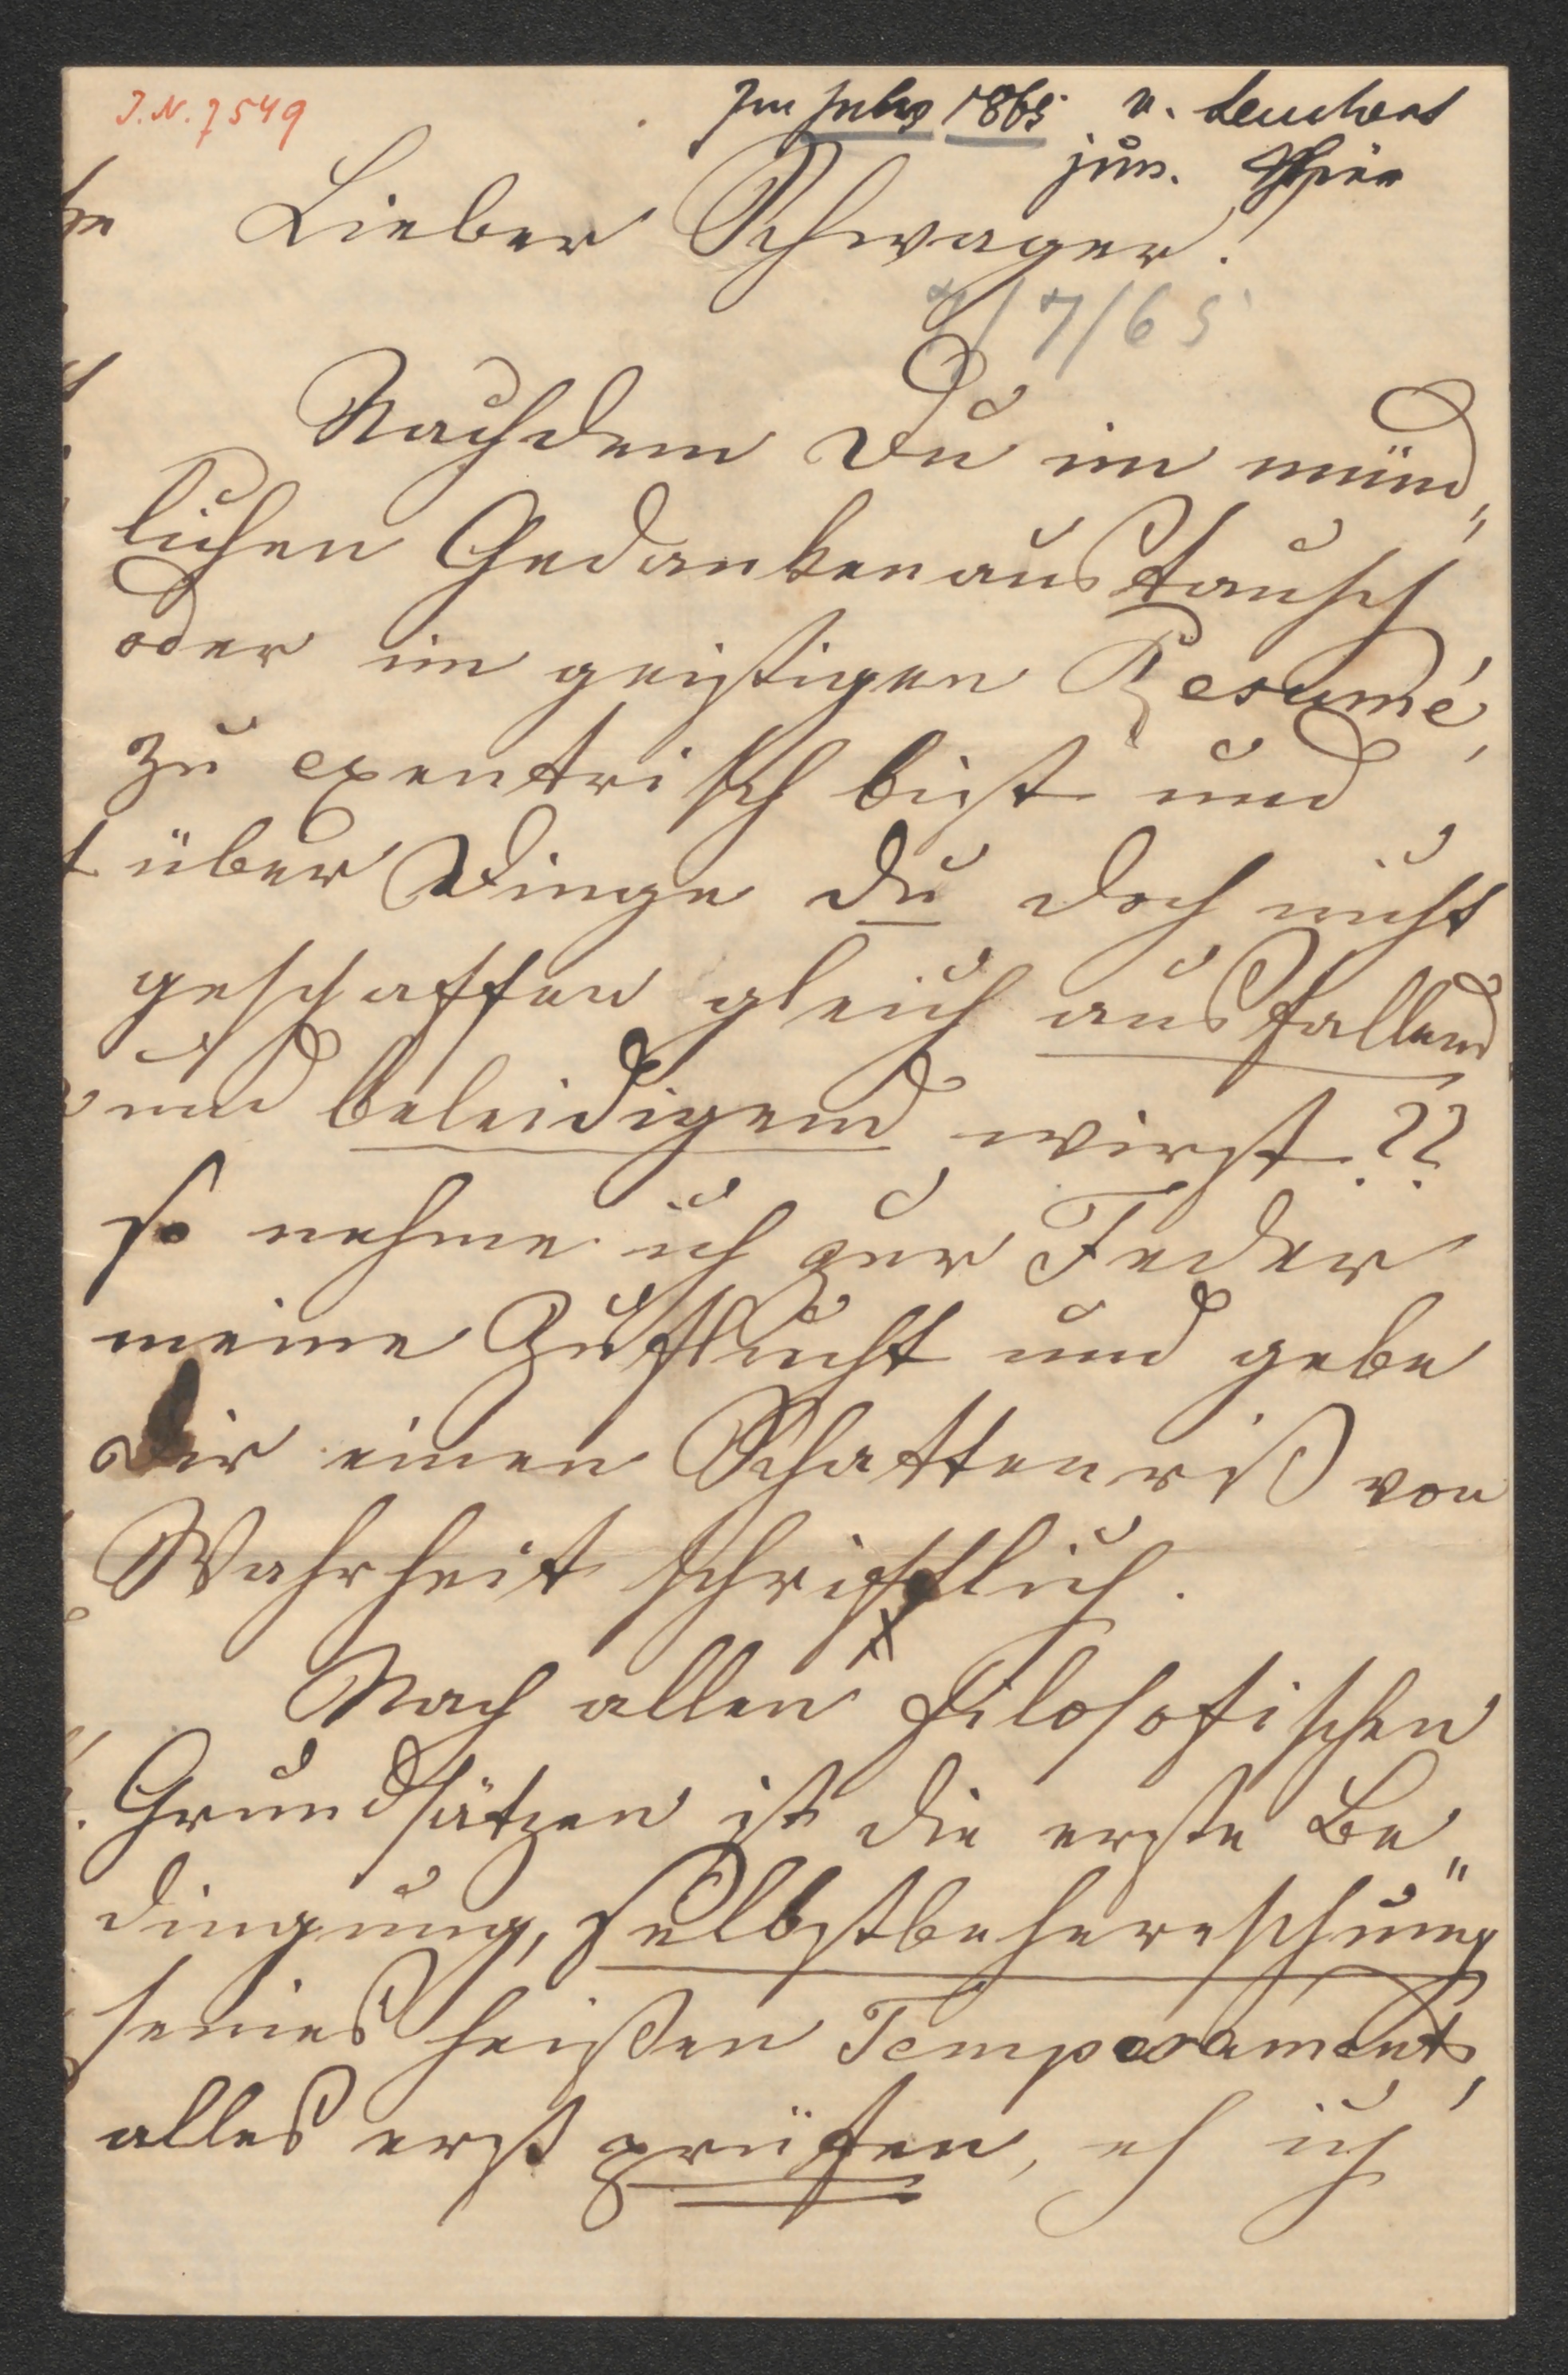 J. N. 7549
Im July 1865 v.
jun.
Lieber Schwager!
7/7/65
Nachdem Du im münd„
lichen Gedankenaustausch
oder im geistigen Resumé,
zu exentrisch bist und
über Dinge du doch nicht
geschaffen gleich ausfallend
und beleidigend wirst??
so nehme ich zur Feder
meine Zuflucht und gebe
Dir einen Schattenriß von
Wahrheit schriftlich.
Nach allen Filosofischen
Grundsätzen ist die erste Be„
dingung, selbstbeherschung
seines heißen Temperaments,
alles erst prüfen, eh ich